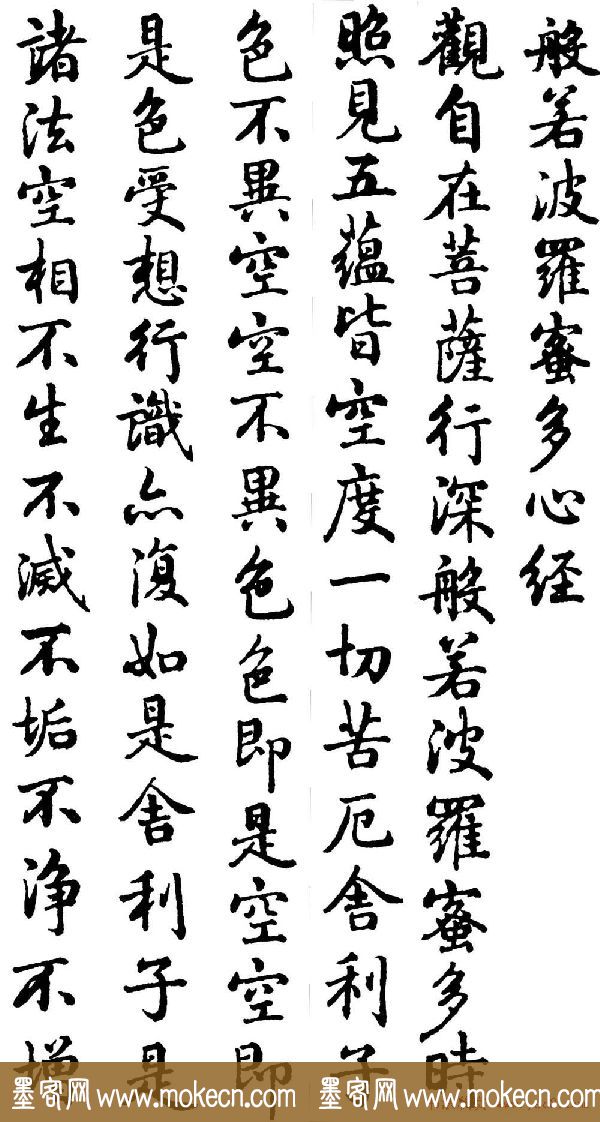 般若波羅蜜多心经
觀自在菩薩行深般若波羅蜜多時
照見五蘊皆空度一切苦厄舍利子
色不異空空不異色色即是空空即
是色受想行識亦復如是舍利子是
諸法空相不生不滅不垢不净不增
墨客网 www.mokecn.com 墨客网 www.mokecn.com